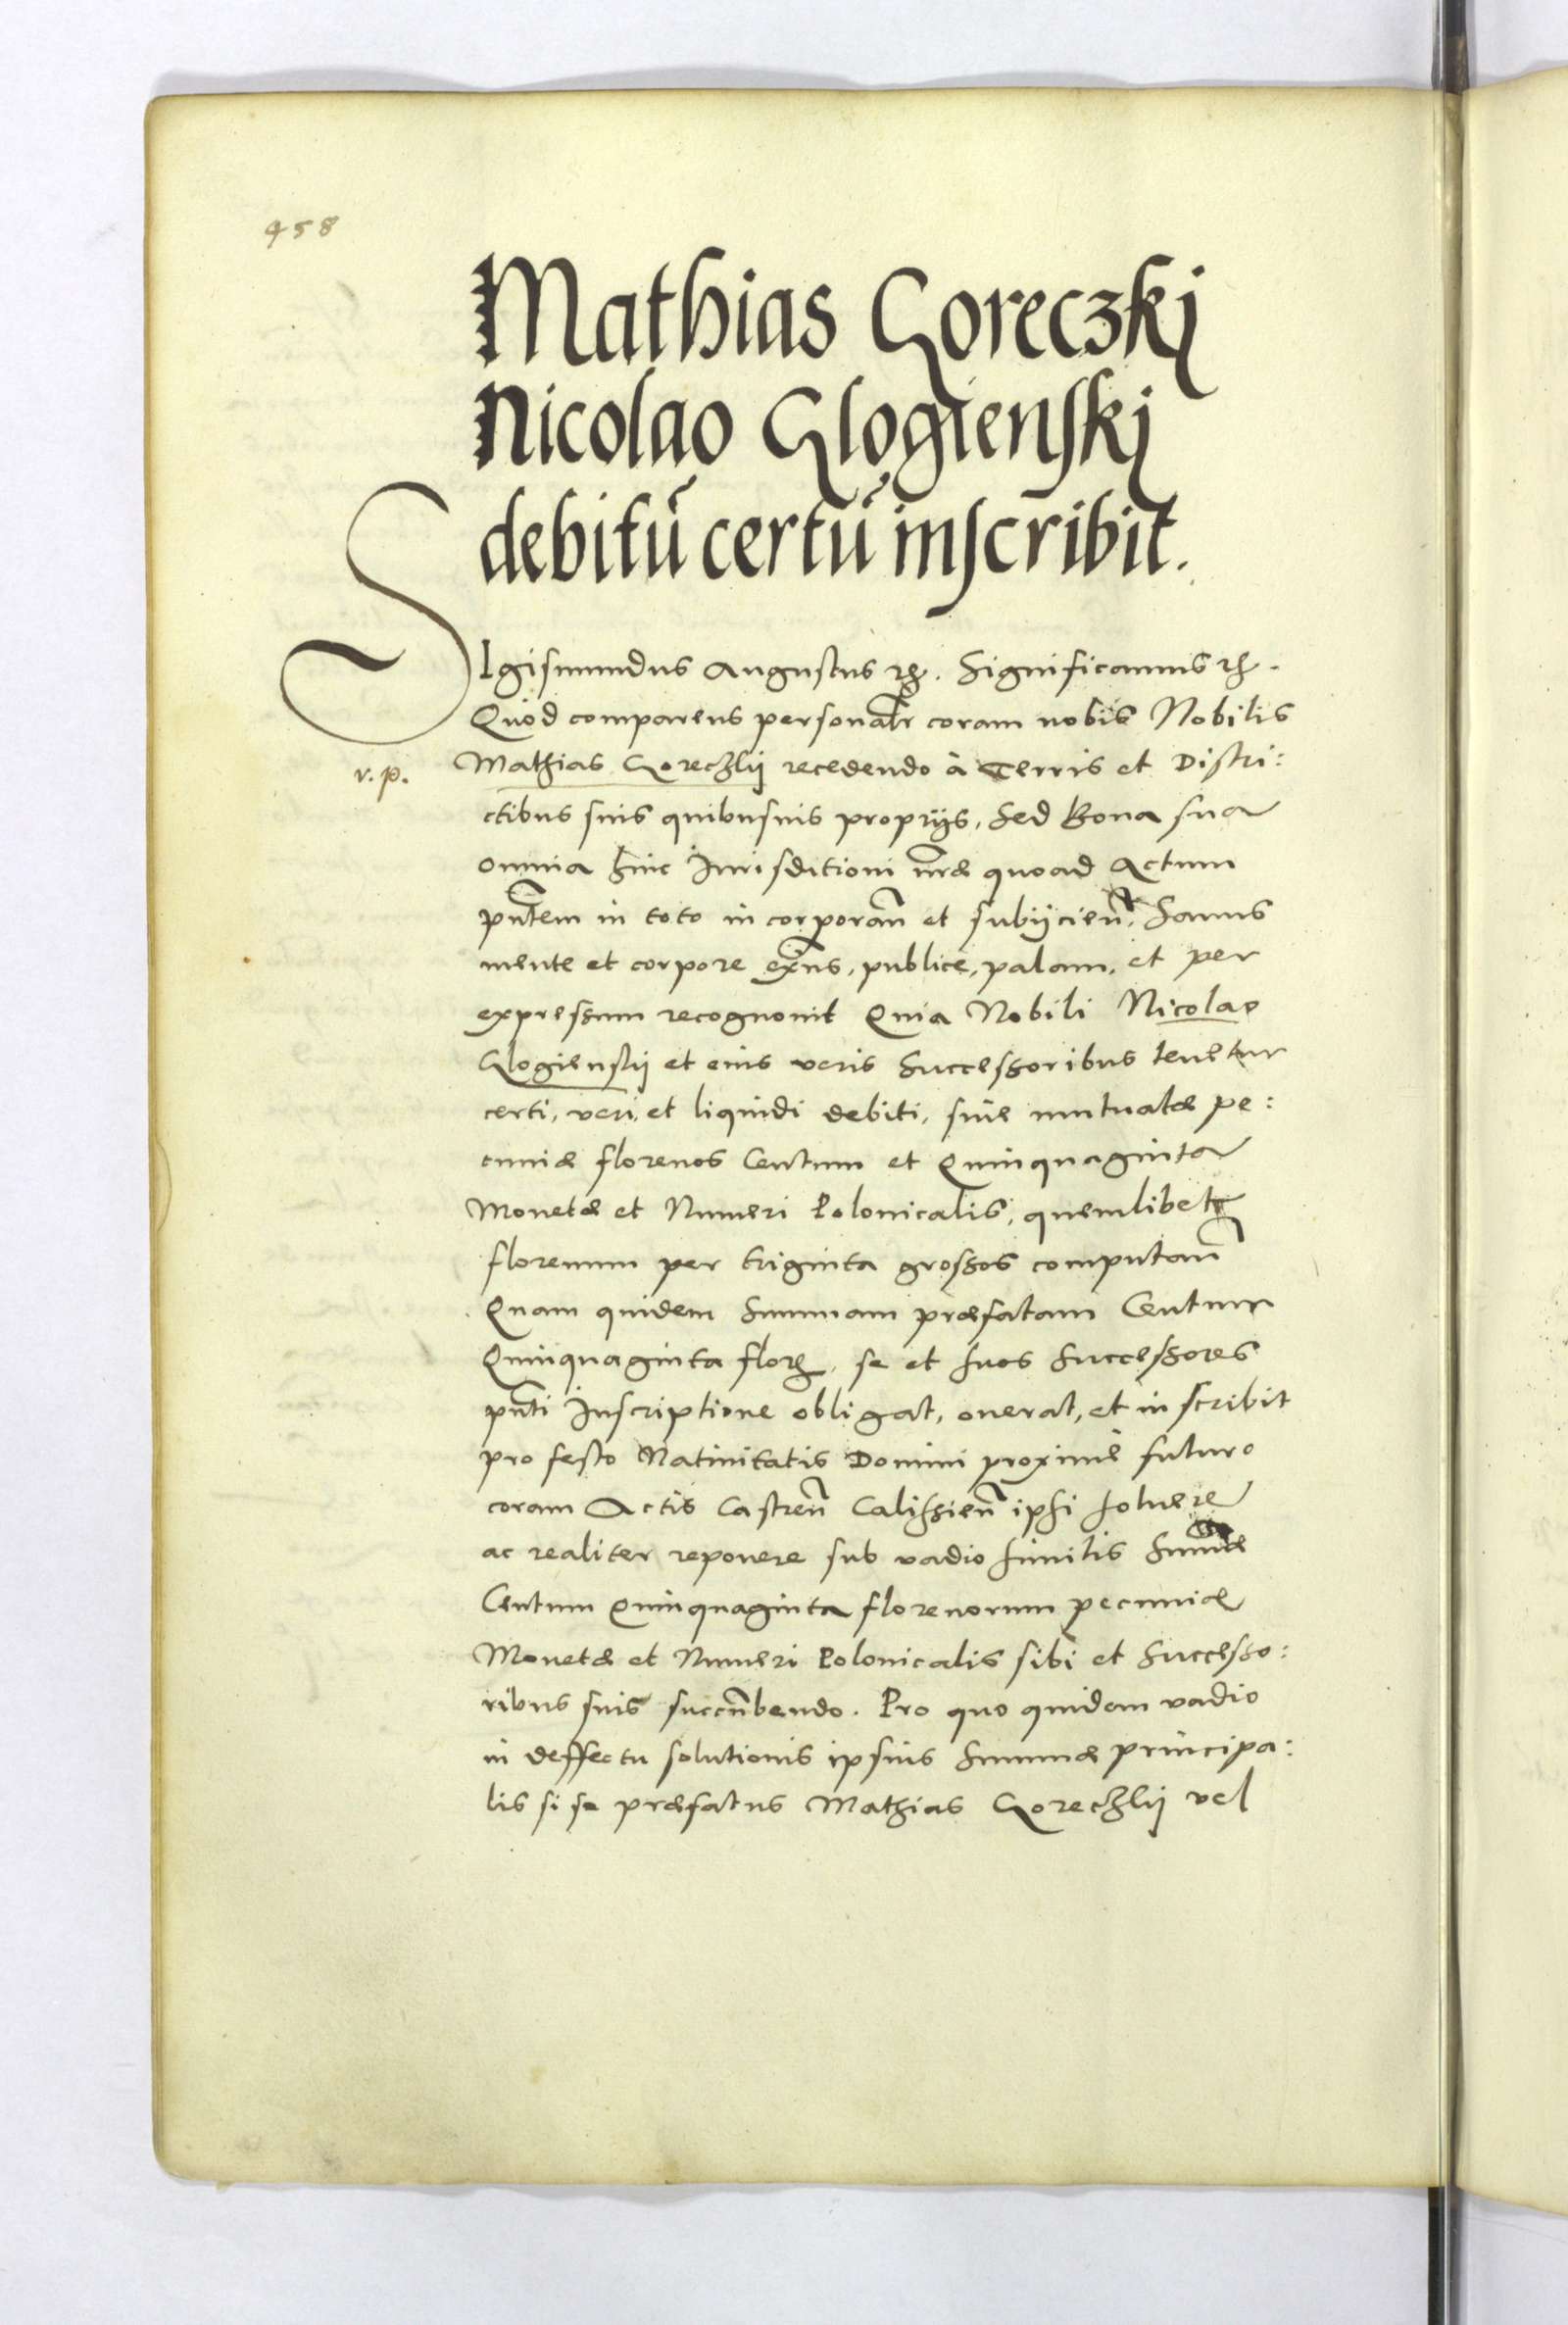 458
Mathias Goreczkj
Nicolao Glogienskj
debitū certū inscribit.
SIgismundus Augustus rę. Significamus rę.
Quod comparens personalr coram nobis Nobilis
v. p.
Mathias Goreczkij recedendo à Terris et Distri:
ctibus suis quibusuis proprijs, Sed Bona sua
omnia huic Jurisditioni nrae quoad Actum
pntem in toto incorporan et subijcien, Sanus
mente et corpore exns, publice, palam, et per
expressum recognouit Quia Nobili Nicolao
Glogienskij et eius veris Successoribus tenetur
certi, veri, et liquidi debiti, siue mutuatæ pe:
cuniæ florenos Centum et Quinquaginta
Monetæ et Numeri Polonicalis, quemlibet
florenum per triginta grossos computan
Quam quidem Summam præfatam Centum
Quinquaginta florę, se et suos Successores
pnti Inscriptione obligat, onerat, et inscribit
pro festo Natiuitatis Domini proximè futuro
coram Actis Castren Calissien ipsi soluere
ac realiter reponere sub vadio similis Summæ
Centum Quinquaginta florenorum pecuniæ
Monetæ et Numeri Polonicalis sibi et Successo:
ribus suis succūbendo. Pro quo quidem vadio
in deffectu solutionis ipsius Summæ principa:
lis si se præfatus Mathias Goreczkij vel